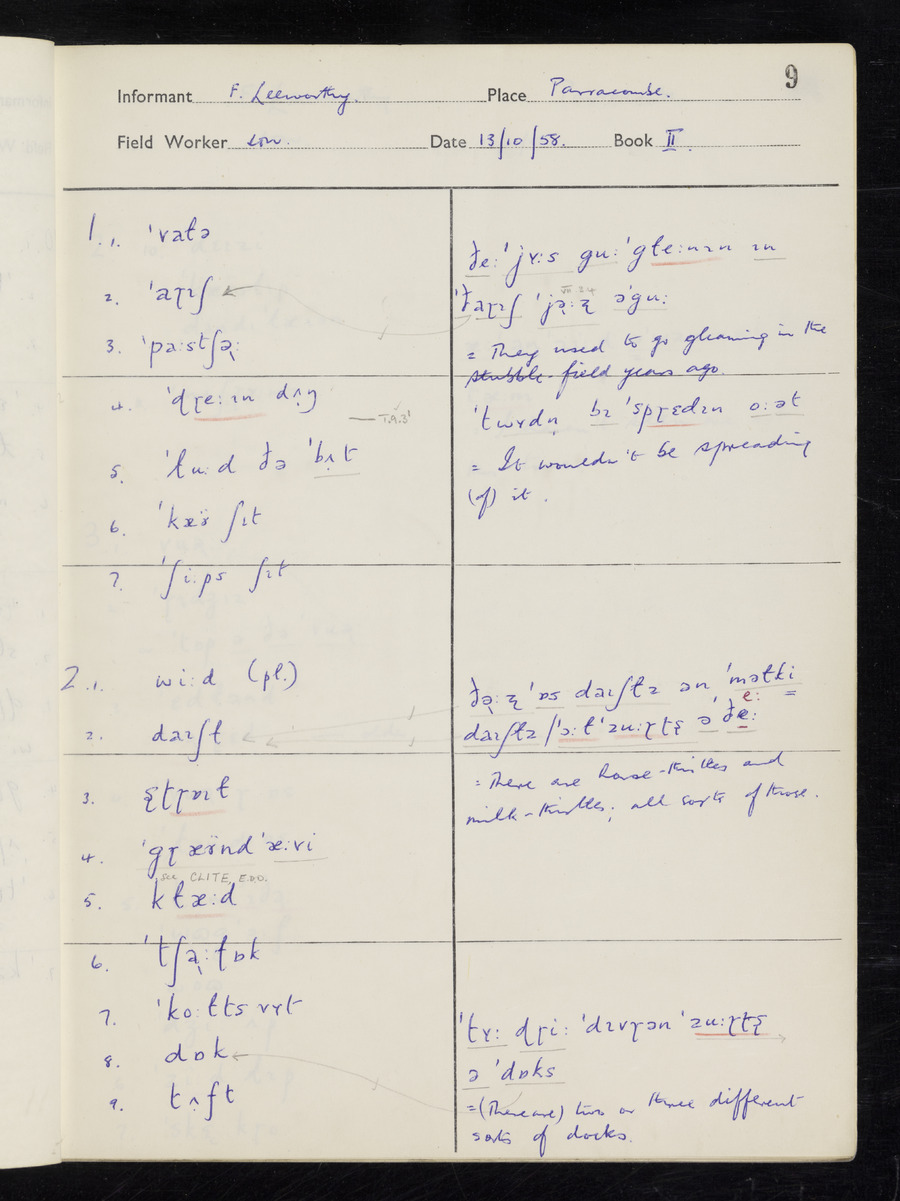 9
Informant F. Leeworthy. Place Parracombe.
Field Worker Date 13/10/58. Book II.
1.1. ˈvatə
2. ˈaɽɪʃ
3. ˈpa:stʃə̢:
4. ˈdɽe:ɪn dʌ̨ŋ
T.A.3'
5. ˈɫu:d ðə ˈbʌ̨t
6. ˈkæʏ̈ ʃɪt
7. ˈʃi:ps ʃɪt
ðe: ˈjʏ:s gu: ˈgɫe:nɪn ɪn
ˈðaɽɪʃ ˈjə̢:ʐ əgu:
= They used to go gleaning in the
stubble-field years ago.
ˈtwʏdn̩ bɪ ˈspɽɛdɪn o:ət
= It wouldn't be spreading
(of) it.
2.1. wi:d (pl.)
2. daɪʃt
3. ʂtɽɒɪt
4. ˈgɽæʏ̈nd ˈæ:vi
see CLITE, E.D.D.
5. kɫæ:d
6. ˈtʃa̢:ɫɒk
7. ˈko:ɫts vʏt
8. dɒk
9. tʌ̨ft
ðə̢:ʐ ˈɒs daɪʃɫz ən ˈməɫki
e:
daɪʃɫz /ˈɔ:ɫ ˈzu:ɽʈʂ ə ðe:
= There are horse-thistles and
milk-thistles; all sorts of those.
ˈtʏ: dɽi: ˈdɪvɽən ˈzu:ɽʈʂ
ə ˈdɒks
=(There are) two or three different
sorts of docks.